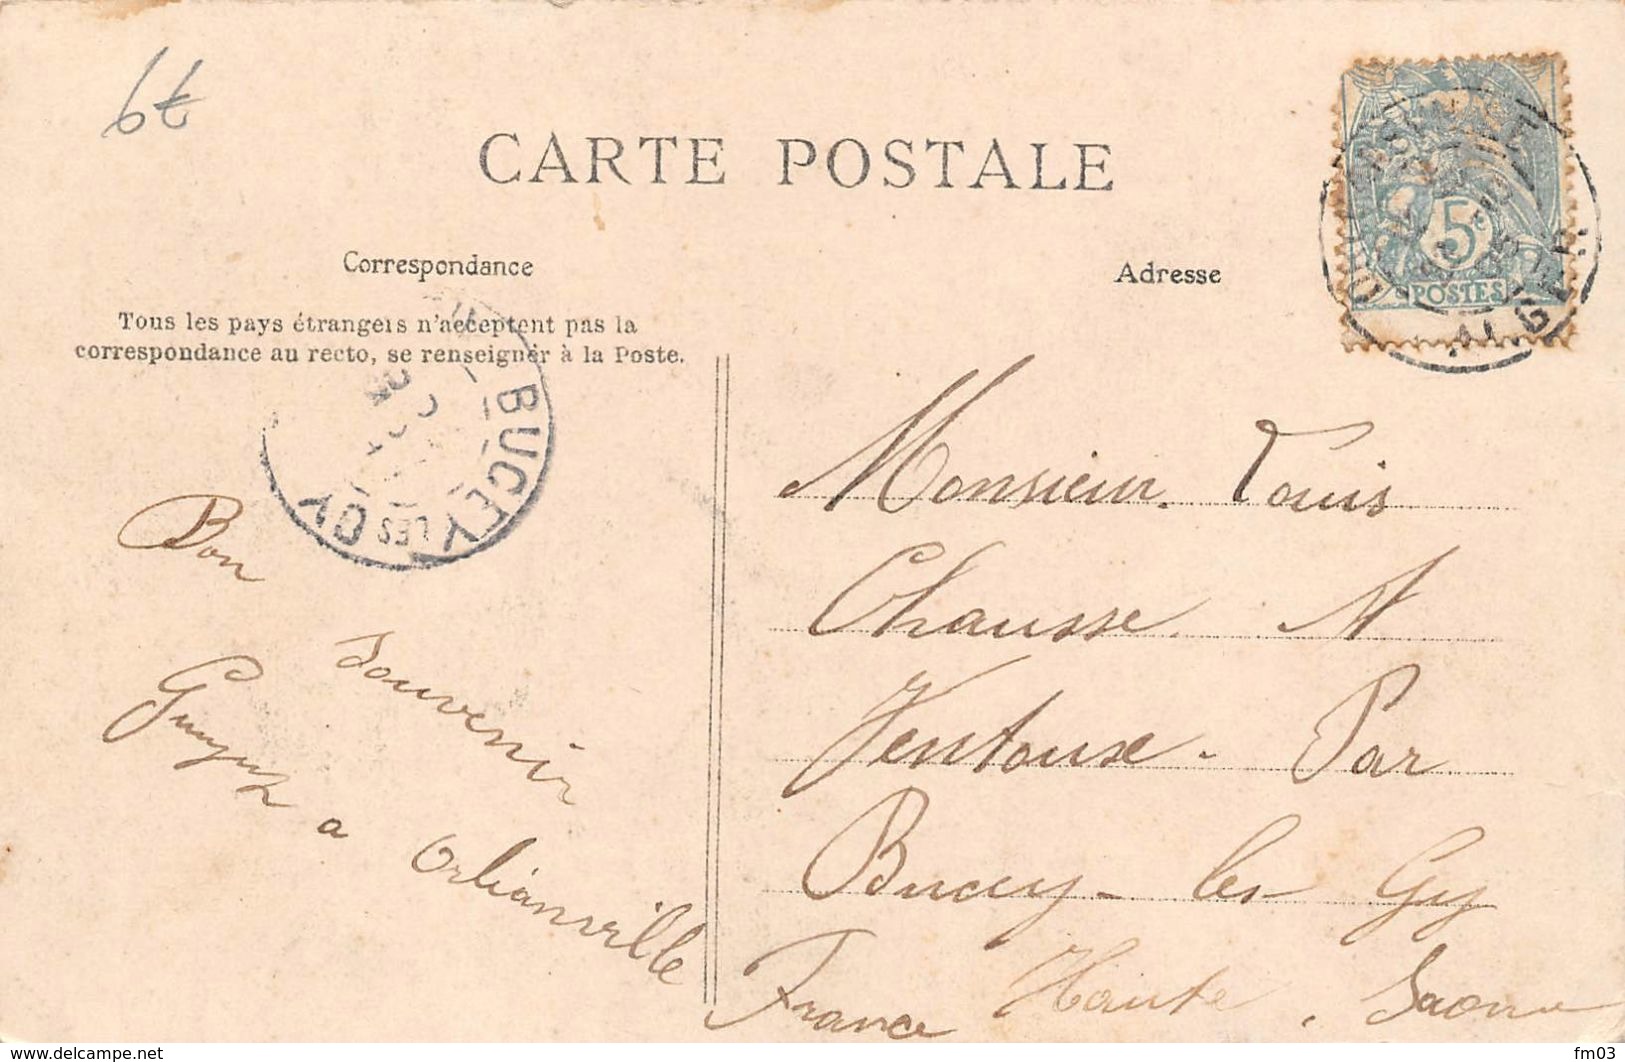 6t
CARTE POSTALE
Correspondance
Tous les pays étrangers n'acceptent pas la
correspondance au recto, se renseigner à la Poste.
Adresse
5
POSTES
ALGER
BUCEY
LES
GY
Bon
Souvenir
a Orléanville
Monsieur Louis
Chausse A
Ventoux. Par
Bucey-les-Gy
France Haute. Saone
www.delcampe.net
fm03